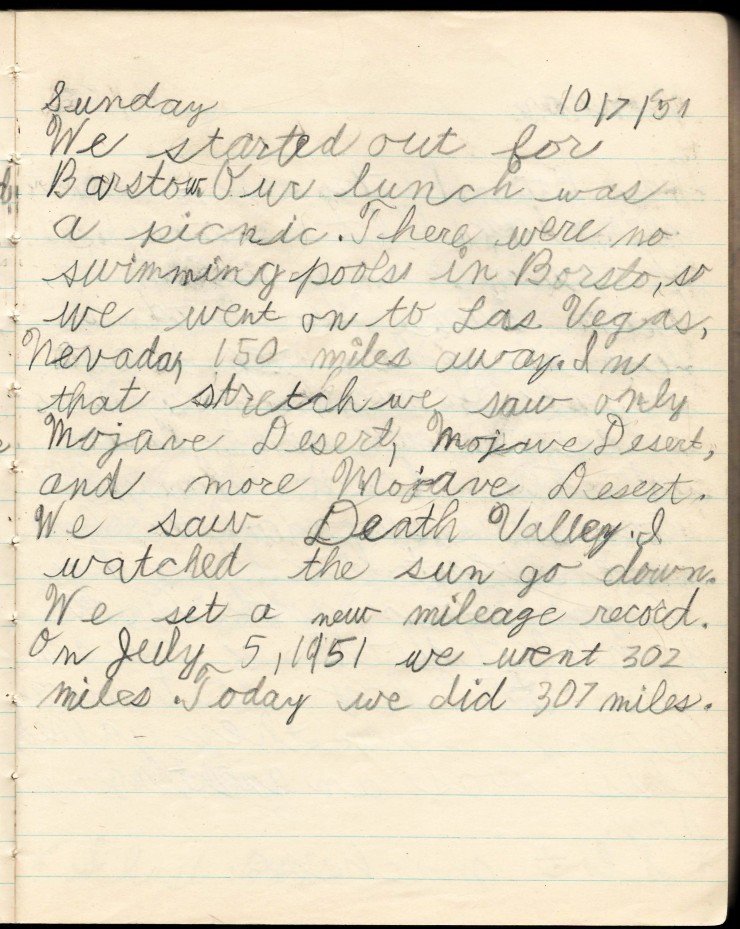 Sunday 10/7/51
We started out for
Barstow. Our lunch was
a picnic. There were no
swimming pools in Borsto, so
we went on to Las Vegas,
Nevada, 150 miles away. In
that stretch we saw only
Mojave Desert, Mojave Desert,
and more Mojave Desert.
We saw Death Valley. I
watched the sun go down.
We set a new mileage record.
On July 5, 1951 we went 302
miles. Today we did 307 miles.